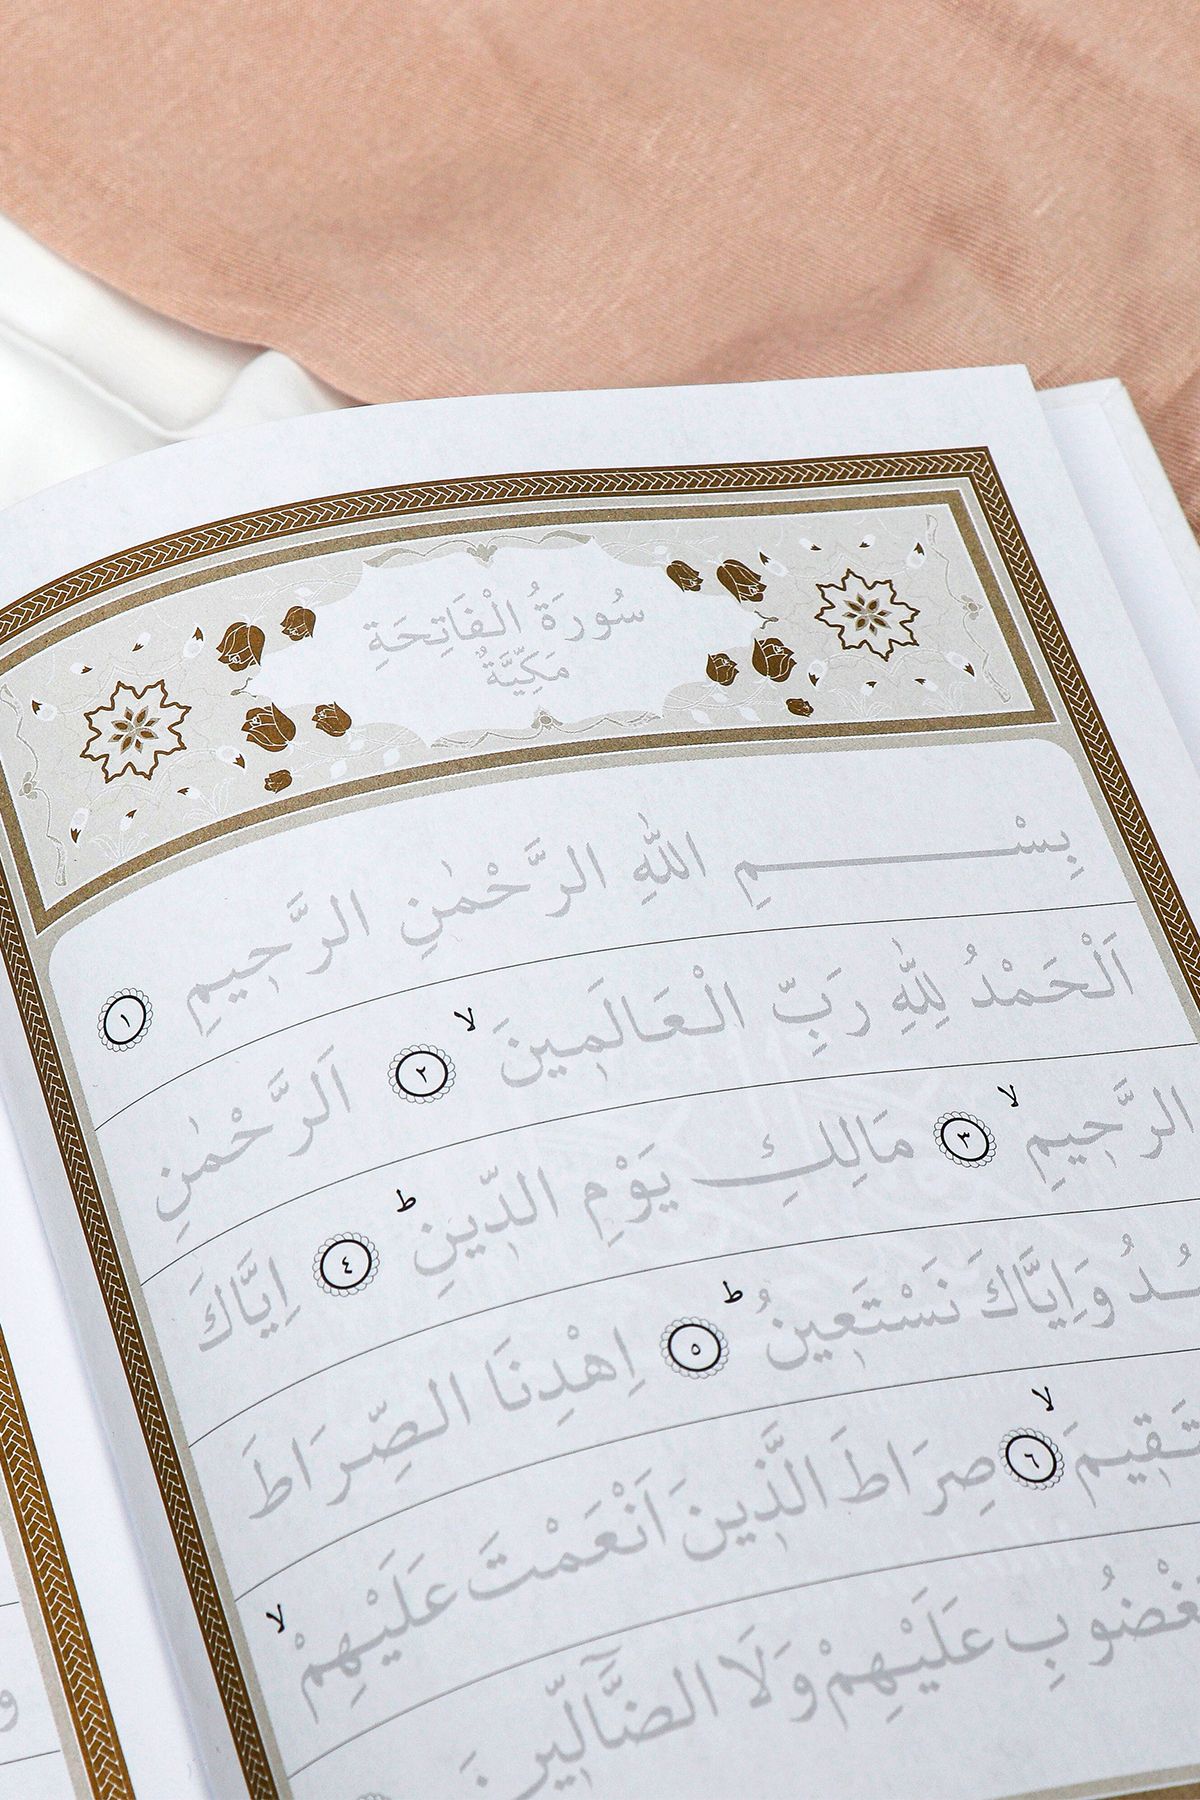 سُورَةُ الْفَاتِحَةِ
مَكِّيَّةٌ
بِسْمِ اللّٰهِ الرَّحْمٰنِ الرَّحِيمِ ١
اَلْحَمْدُ لِلّٰهِ رَبِّ الْعَالَمِينَ لا ٢ اَلرَّحْمٰنِ
الرَّحِيمِ لا ٣ مَالِكِ يَوْمِ الدِّينِ ط ٤ اِيَّاكَ
وَاِيَّاكَ نَسْتَعِينُ ط ٥ اِهْدِنَا الصِّرَاطَ
لا ٦ صِرَاطَ الَّذِينَ اَنْعَمْتَ عَلَيْهِمْ لا
عَلَيْهِمْ وَلَا الضَّالِّينَ